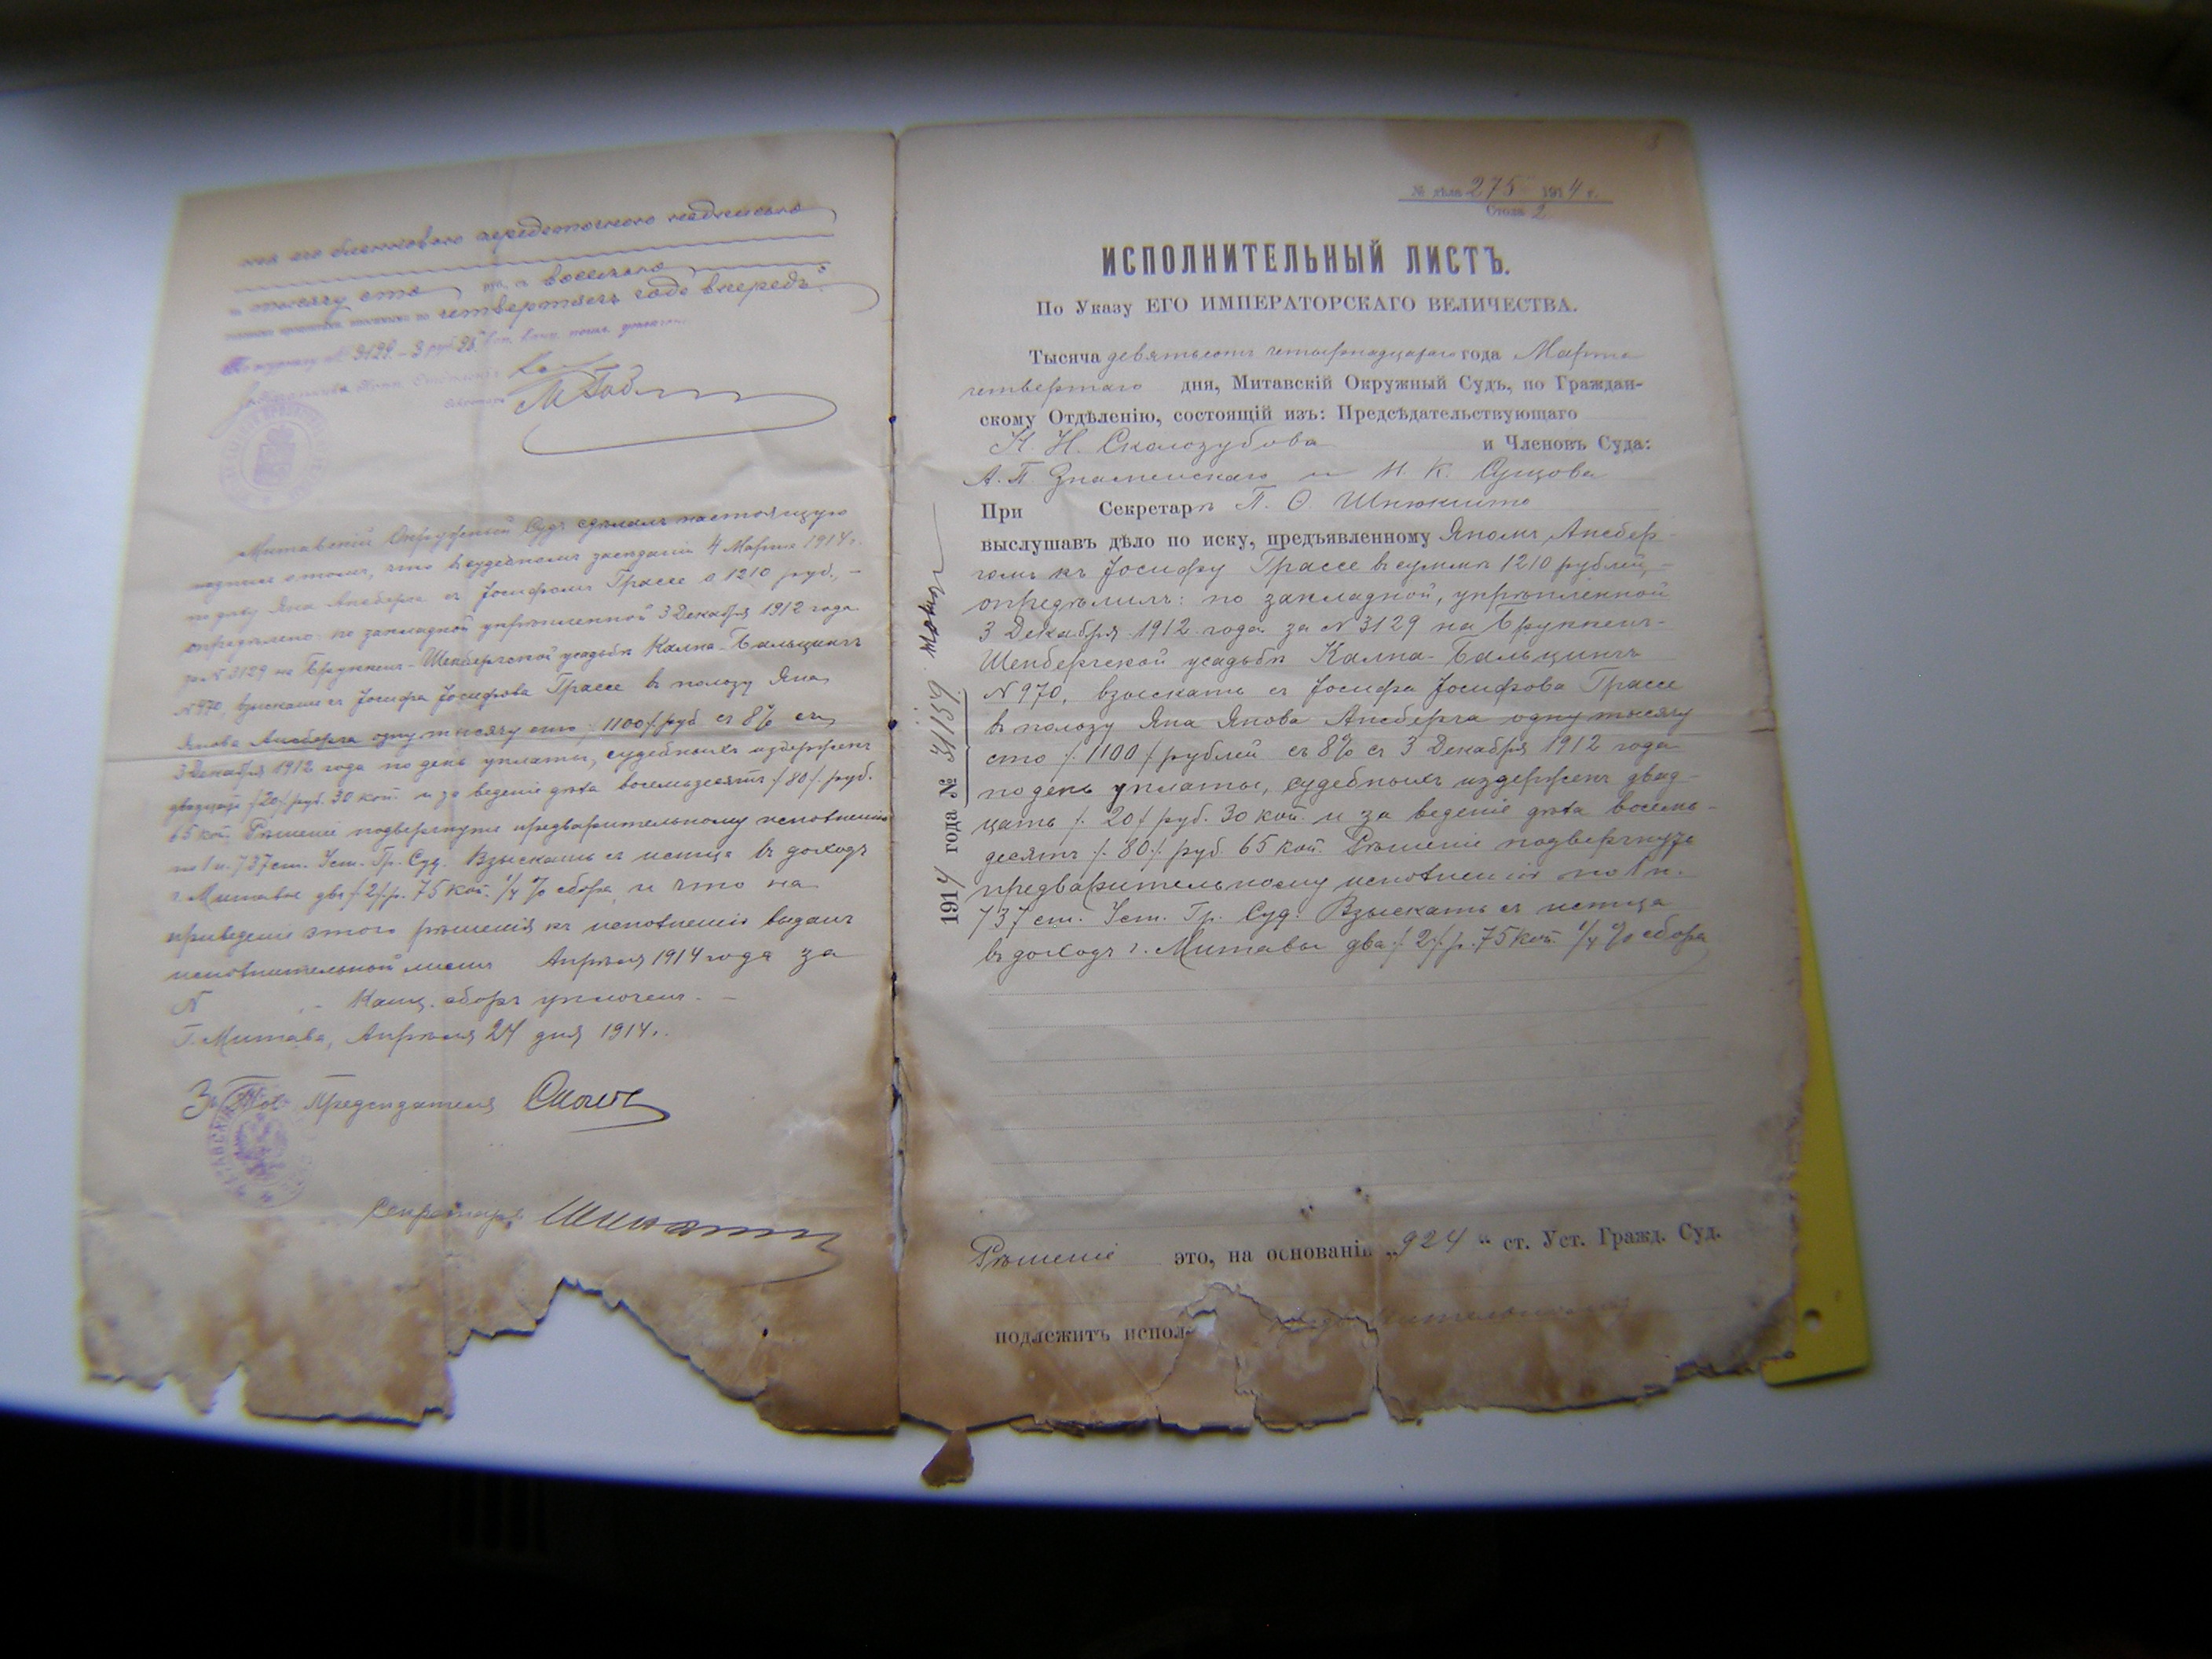 на его бланковою передаточною надписью
тысячу сто руб. съ восемью
четвертомъ годѣ впередъ".
По журналу № 3129 – 3 руб. 25 коп. канц. пошл.
Секретарь
Митавскій Окружный Судъ сдѣлалъ настоящую
надпись о томъ, что въ судебномъ засѣданіи 4 Марта 1914 г.
по дѣлу Яна Ансберга съ Іосифомъ Грассе о 1210 руб., –
опредѣлено: по закладной укрѣпленной 3 Декабря 1912 года
за N 3129 на Бруккенъ-Шенбергской усадьбѣ Кална-Бальцинъ
N 970, взыскать съ Іосифа Іосифова Грассе въ пользу Яна
Янова Ансберга одну тысячу сто /1100/ руб. съ 8% съ
3 Декабря 1912 года по день уплаты, судебныхъ издержекъ
двадцать /20/ руб. 30 коп. и за веденіе дѣла восемьдесятъ /80/ руб.
65 коп. Рѣшеніе подвергнуть предварительному исполненію
по 1 п. 737 ст. Уст. Гр. Суд. Взыскать съ истца въ доходъ
г. Митавы два /2/ р. 75 коп. ¼% сбора, и что на
приведеніе этого рѣшенія къ исполненію выданъ
исполнительный листъ Апрѣля 1914 года за
N . – Канц. сборъ уплоченъ. –
Г. Митава, Апрѣля 24 дня 1914 г.
За Тов. Предсѣдателя
Секретарь
№ дѣла 275 1914 г.
Стола 2
ИСПОЛНИТЕЛЬНЫЙ ЛИСТЪ.
По Указу ЕГО ИМПЕРАТОРСКАГО ВЕЛИЧЕСТВА.
Тысяча девятьсотъ четырнадцатаго года Марта
четвертаго дня, Митавскій Окружный Судъ, по Граждан-
скому Отдѣленію, состоящій изъ: Предсѣдательствующаго
Н. Н. Скалозубова и Членовъ Суда:
А. П. Знаменскаго и Н. К. Сущова
При Секретарѣ П. О. Шнюкшто
выслушавъ дѣло по иску, предъявленному Яномъ Ансбер-
гомъ къ Іосифу Грассе въ суммѣ 1210 рублей, –
опредѣлилъ: по закладной, укрѣпленной
3 Декабря 1912 года за N 3129 на Бруккенъ-
Шенбергской усадьбѣ Кална-Бальцинъ
N 970, взыскать съ Іосифа Іосифова Грассе
въ пользу Яна Янова Ансберга одну тысячу
сто /1100/ рублей съ 8% съ 3 Декабря 1912 года
по день уплаты, судебныхъ издержекъ двад-
цать /20/ руб. 30 коп. и за веденіе дѣла восемь-
десятъ /80/ руб. 65 коп. Рѣшеніе подвергнуть
предварительному исполненію по 1 п.
737 ст. Уст. Гр. Суд. Взыскать съ истца
въ доходъ г. Митавы два /2/ р. 75 коп. ¼% сбора
1914 года № 31159
Рѣшеніе это, на основаніи „924“ ст. Уст. Гражд. Суд.
подлежитъ испол